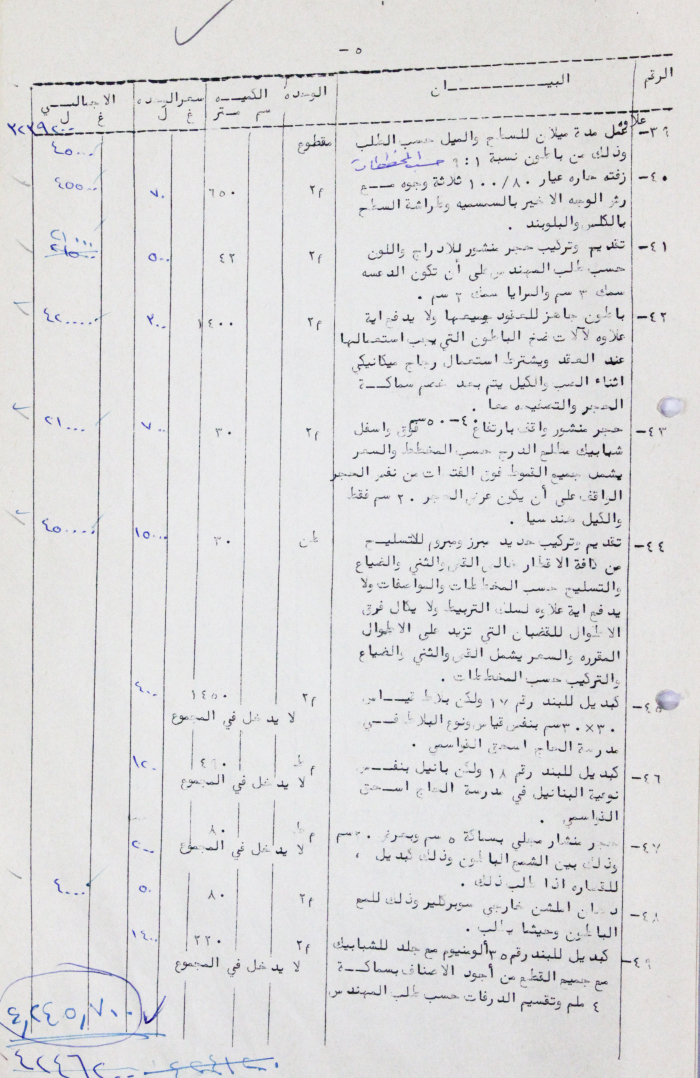 ٥ -
الرقم البيـــــــــان الوحده الكميـــه سعر الوحده الاجمالـــي
م ستر غ ل غ ل
علاوه
٣٩- عمل مدة ميلان للسطح والميل حسب الطلب مقطوع
وذلك من باطون نسبة ١ : ٩ حسب المخططات
٤٠- زفته حاره عيار ١٠٠/٨٠ ثلاثة وجوه مـــع م٢ ٦٥٠ ٧٠ ٤٥٥٠٠
رش الوجه الاخير بالسمسميه وطراشة السطح
بالكلس والبلوبند .
٤١- تقديم وتركيب حجر منشور للادراج واللون م٢ ٤٢ ٥٠٠ ٢١٠٠٠
حسب طلب المهندس على أن تكون الدعسه
سمك ٣ سم والمرايا سمك ٢ سم .
٤٢- باطون جاهز للعقود جميعها ولا يدفع اية م٢ ١٤٠٠ ٣٠٠ ٤٢٠٠٠٠
علاوه لآلات ضخ الباطون التي يجب استعمالها
عند العقد ويشترط استعمال رجاج ميكانيكي
اثناء الصب والكيل يتم بعد خصم سماكـــة
الحجر والتصفيحه معا .
٤٣- حجر منشور واقف بارتفاع ٤٠-٥٠سم فوق واسفل م٢ ٣٠ ٧٠٠ ٢١٠٠٠
شبابيك مطلع الدرج حسب المخطط والسعر
يشمل جميع القموط فوق الفتحات من نفس الحجر
الواقف على أن يكون عرض الحجر ٢٠ سم فقط
والكيل هندسيا .
٤٤- تقديم وتركيب حديد مبرز ومبروم للتسليـــح طن ٣٠ ١٥٠٠٠ ٤٥٠٠٠٠
من كافة الاقطار خالص القص والثني والضياع
والتسليح حسب المخططات والمواصفات ولا
يدفع اية علاوه لسلك التربيط ولا يكال فرق
الاطوال للقضبان التي تزيد على الاطوال
المقرره والسعر يشمل القص والثني والضياع
والتركيب حسب المخططات .
٤٥- كبديل للبند رقم ١٧ ولكن بلاط قيــاس م٢ ١٤٥٠ ٤٠٠
٣٠×٣٠سم بنفس قياس ونوع البلاط فـــي لا يدخل في المجموع
مدرسة الحاج اسحق القواسمي .
٤٦- كبديل للبند رقم ١٨ ولكن بانيل بنفـــس م ط ٤٩٠ ١٢٠
نوعية البنانيل في مدرسة الحاج اســحق لا يدخل في المجموع
القواسمي .
٤٧- حجر منشار مجلي بسماكة ٥ سم وبعرض م ط ٨٠ ٢٠٠
وذلك بين الشمع الباطون وذلك كبديل ، لا يدخل في المجموع
للقصاره اذا طلب ذلك .
٤٨- دهان املشن خارجي سوبركلير وذلك للمع م٢ ٨٠ ٥٠ ٤٠٠٠
الباطون وحيثما يطلب .
٤٩- كبديل للبند رقم ٣٥ ألومنيوم مع جلد للشبابيك م٢ ٢٢٠ ١٤٠٠
مع جميع القطع من أجود الاصناف بسماكـــة لا يدخل في المجموع
٤ ملم وتقسيم الدرفات حسب طلب المهندس